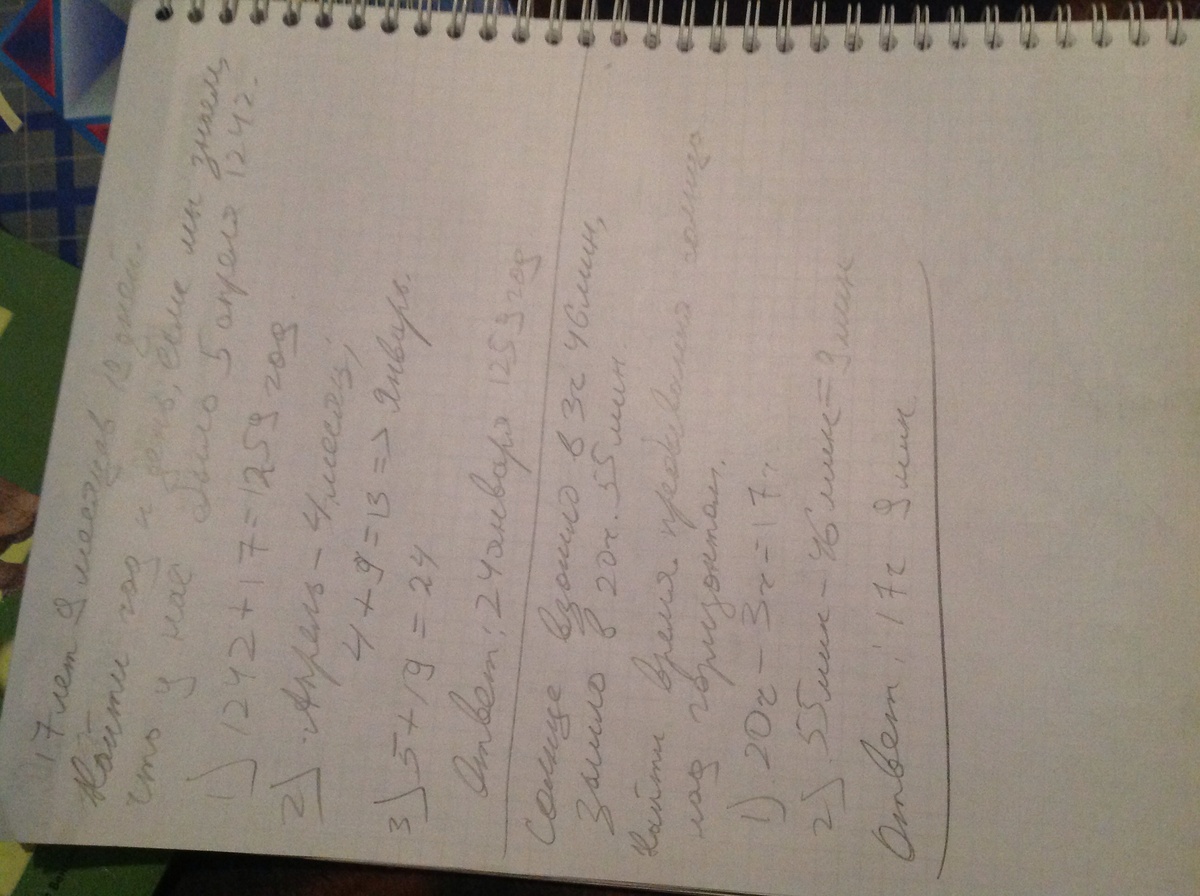 17 лет 9 месяцев 19 дней.
Найти год и день, если мы знаем,
что у нас было 5 апреля 1242.
1) 1242+17=1259 год
2) Апрель - 4 месяц;
4+9=13=> январь.
3) 5+19=24
Ответ: 24 января 1259 год
Солнце взошло в 3ч 46 мин,
Зашло в 20ч. 55 мин.
Найти время пребывания солнца
над горизонтом.
1) 20ч - 3ч = 17ч
2) 55 мин - 46 мин = 9 мин
Ответ: 17ч 9 мин